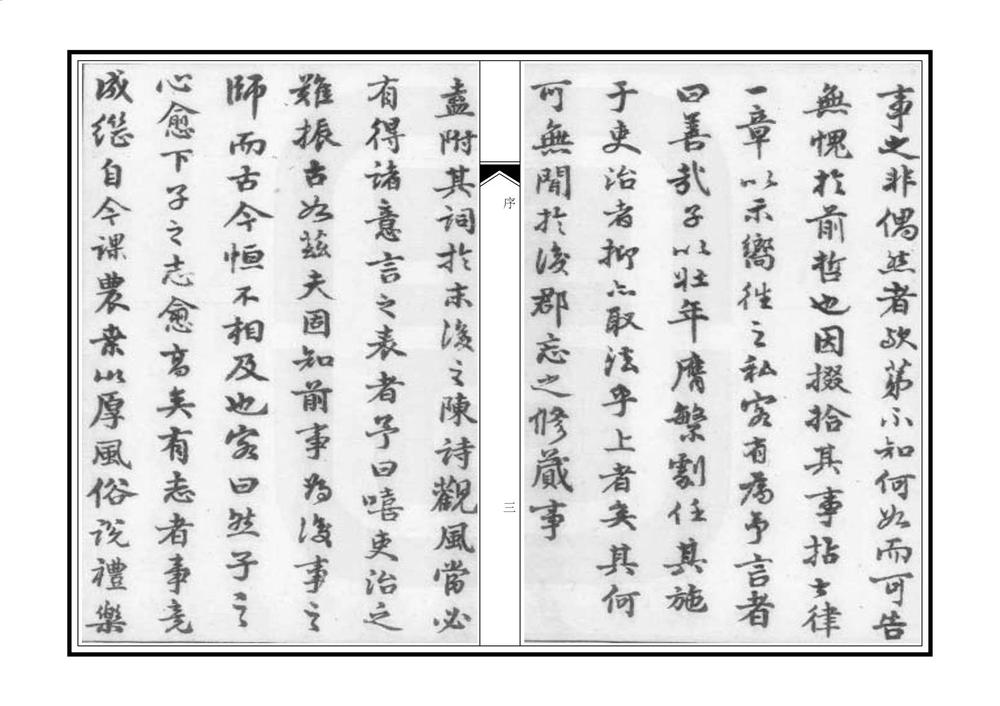 事之非偶然者歟第不知何如而可告
無愧於前哲也因掇拾其事拈七律
一章以示嚮往之私客有為予言者
曰善哉子以壯年膺繁劇任其施
于吏治者抑亦取法乎上者矣其何
可無聞於後郡志之修蕆事
序
三
盍附其詞於末後之陳詩觀風當必
有得諸意言之表者予曰嘻吏治之
難振古如茲夫固知前事為後事之
師而古今恒不相及也客曰然子之
心愈下子之志愈高矣有志者事竟
成繼自今課農桑以厚風俗說禮樂